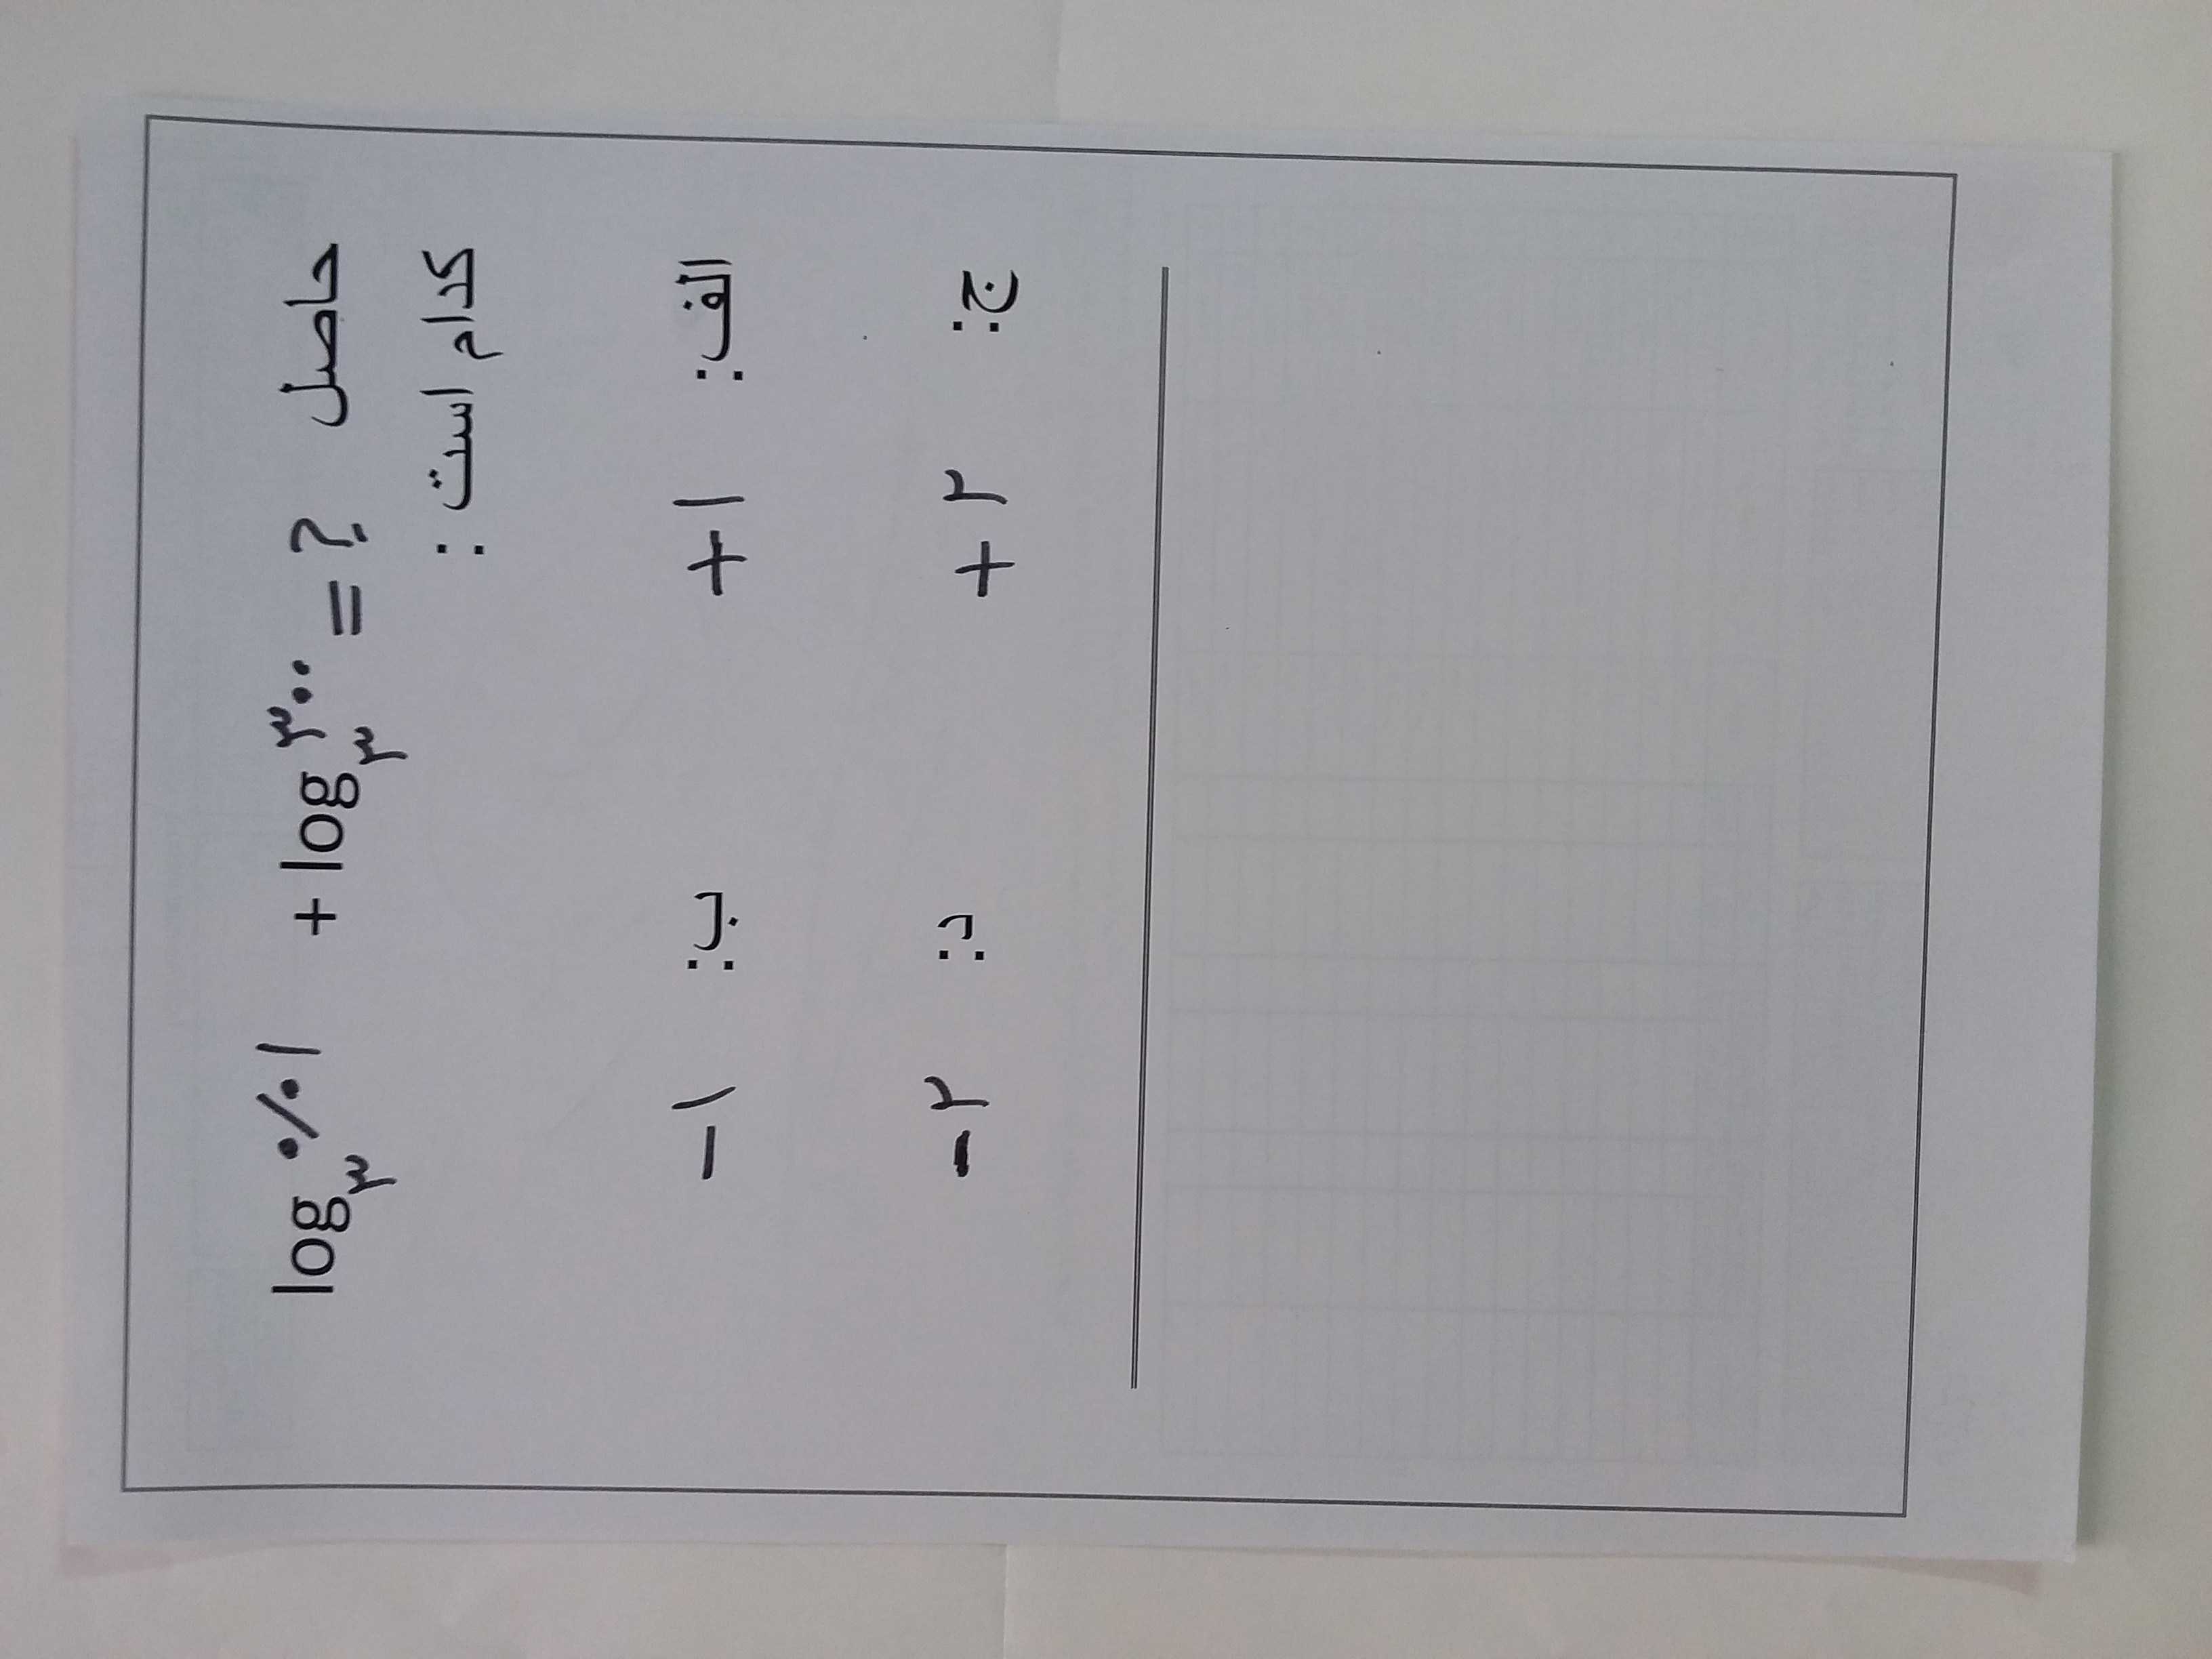 حاصل log₃ ۰/۰۱ + log₃ ۳۰۰ = ?
کدام است :
الف: +۱ ب: -۱
ج: +۲ د: -۲